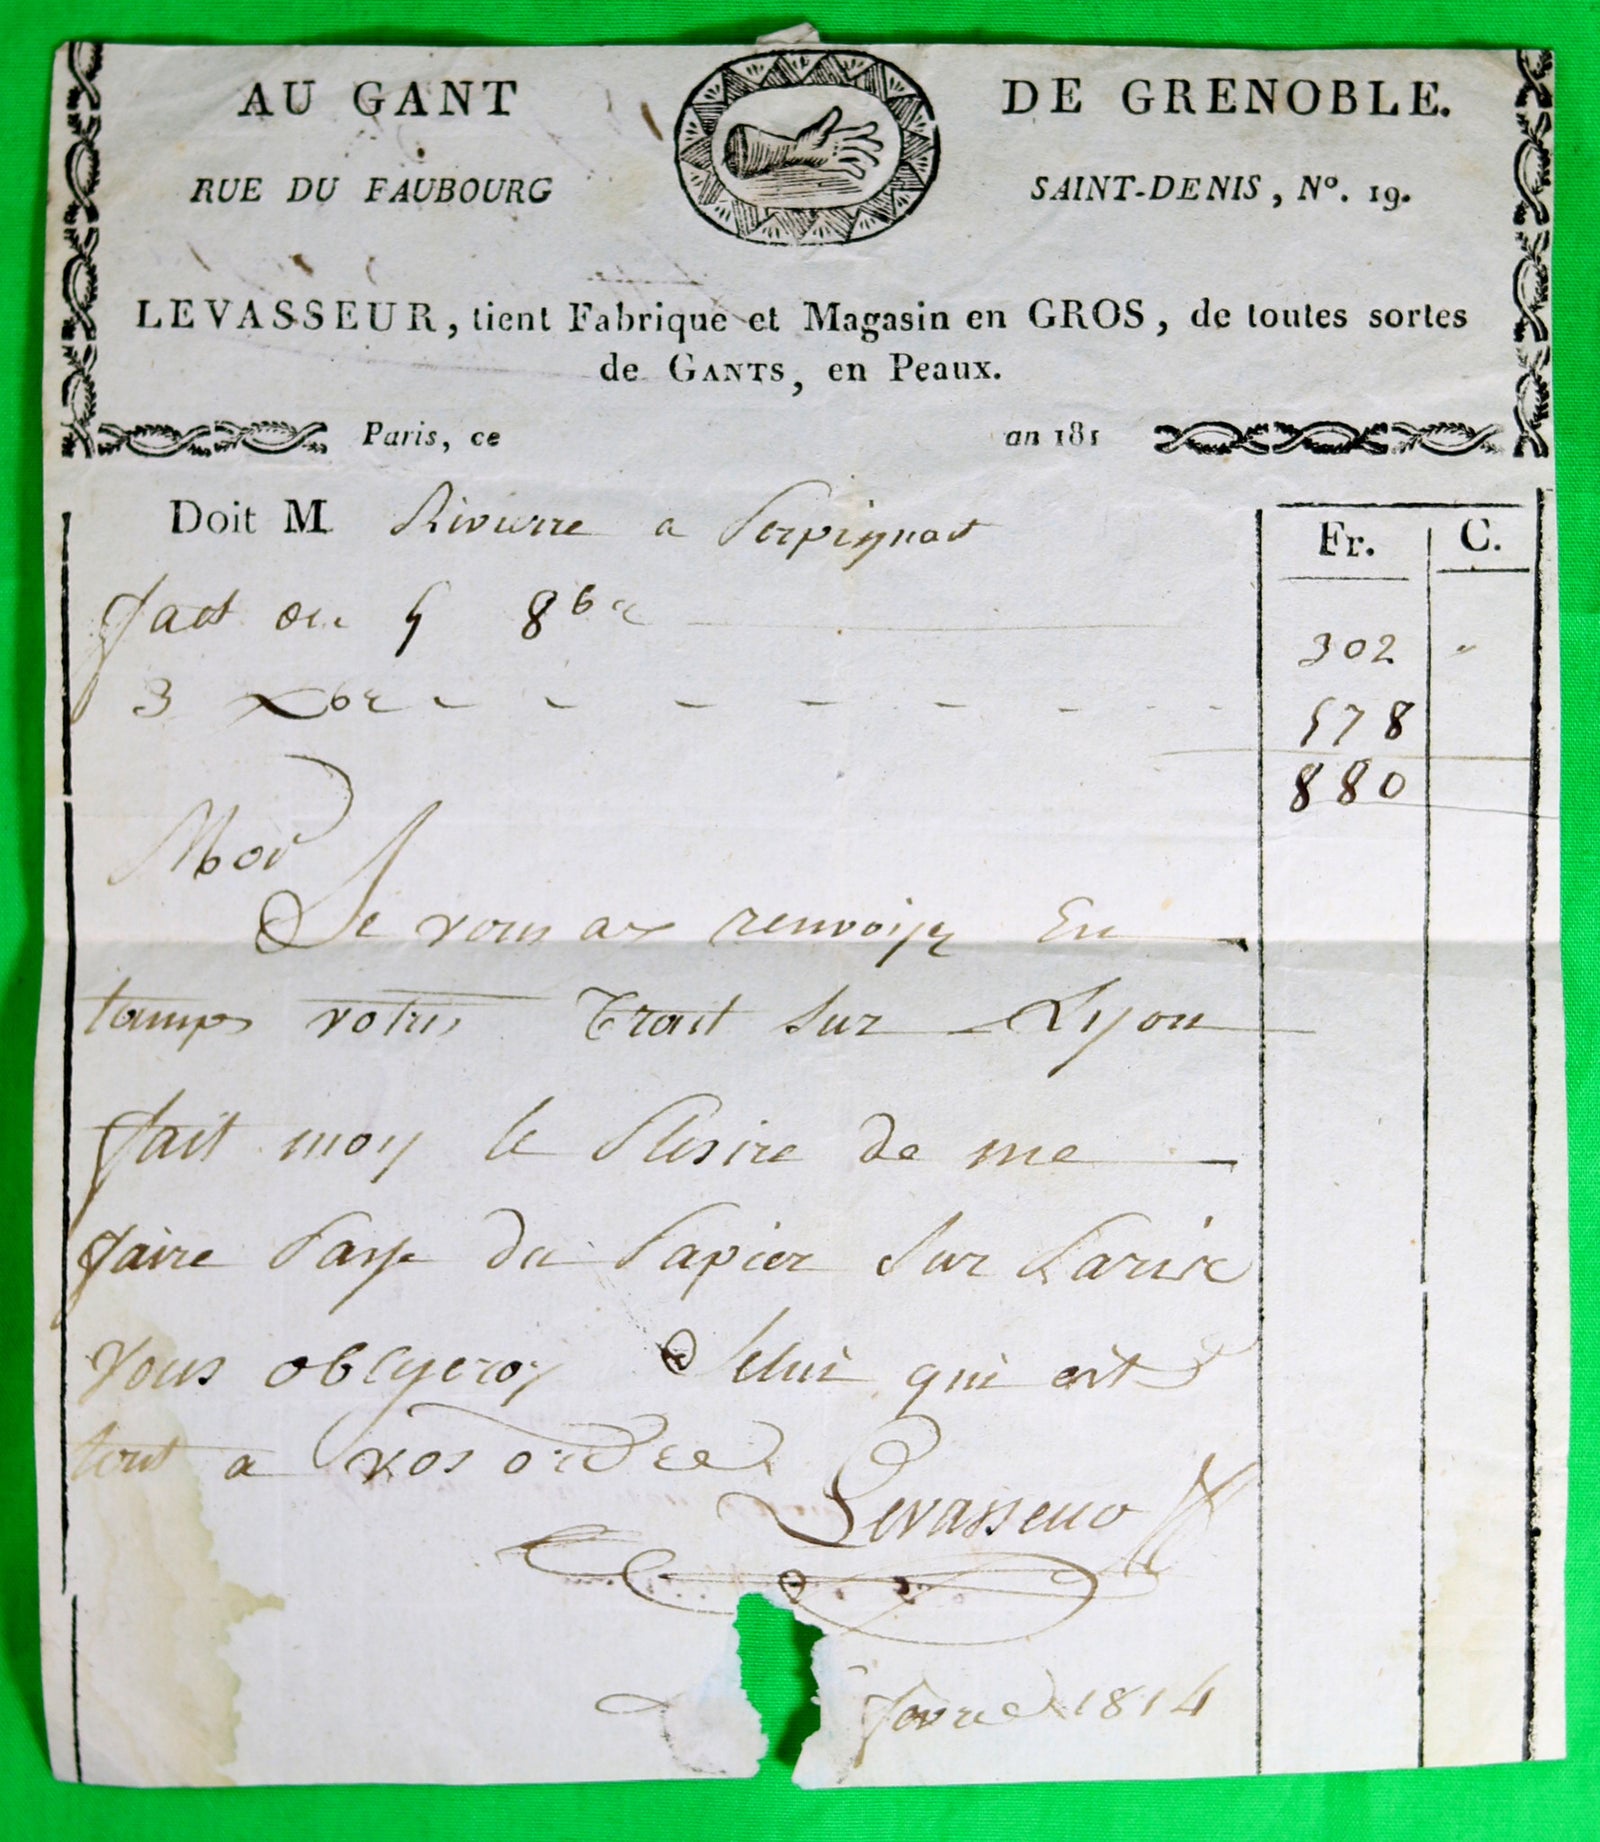 AU GANT DE GRENOBLE.
RUE DU FAUBOURG SAINT-DENIS, Nº. 19.
LEVASSEUR, tient Fabrique et Magasin en GROS, de toutes sortes
de GANTS, en Peaux.
Paris, ce an 181
Doit M Rivierre a Perpignat
Fr. C.
fact du 5 8bre 302 "
3 Xbre 578
880
Mor
Je vous ax renvoiye En
tamps votre Trait sur Lyon
fait moy le Plesire de me
faire Passe du Papier sur Paris
vous oblyeroy Selui qui est
tout a vos ordre
Levasseur
fevrie 1814